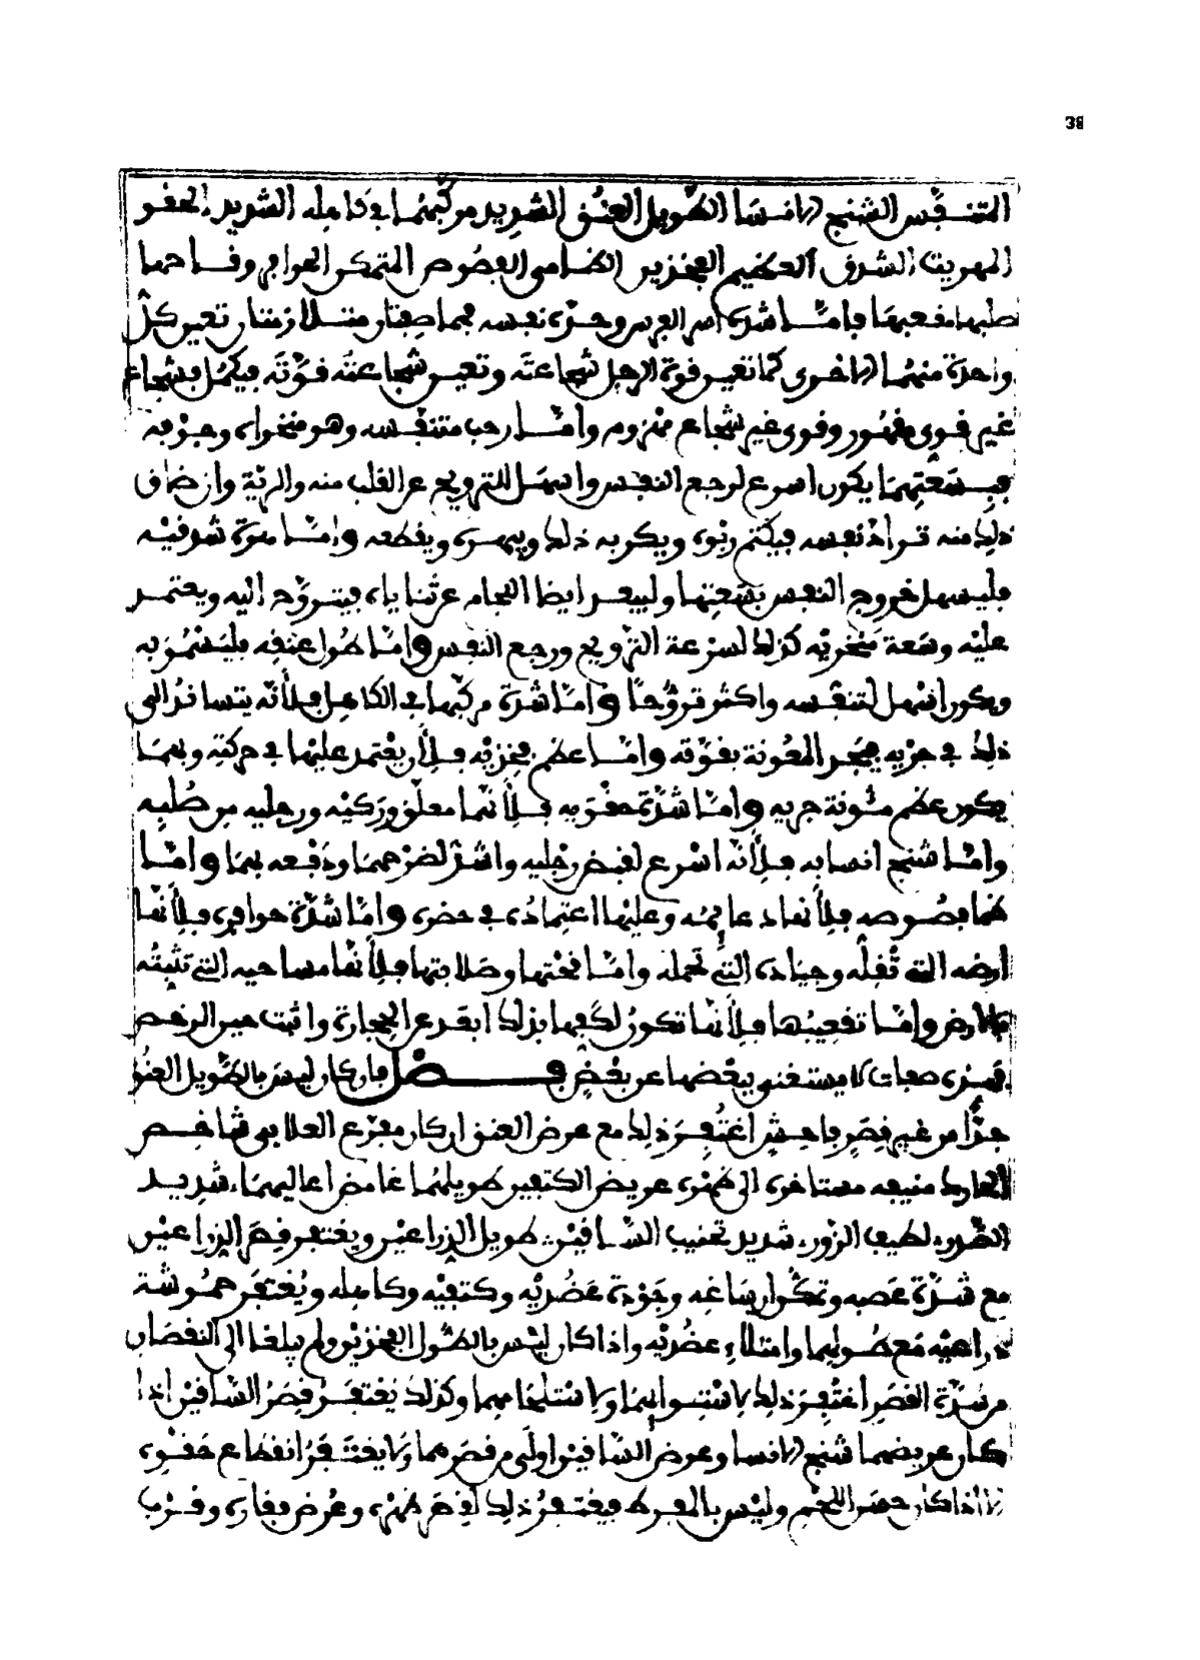 38
المتنفس الشنج الانسا الطويل العنق الشديد مركبهما في كاهله الشديد الحقو
الهريت الشدق العظيم الفخذين الظامي الفصوص المتمكن الحوافر وقاحها
صلبها مقعبها فاما شدة اسر الفرس وحدة نفسه فهما صفتان متلازمتان تعين كل
واحدة منهما الاخرى كما تعين قوة الرجل شجاعته وتعين شجاعته قوته فيكمل فشجاع
غير قوي مقهور وقوى غير شجاع مهزوم واما رحب متنفسه وهو منخراه وجوفه
فبسعتهما يكون اسرع لرجع النفس واسهل للترويح عن القلب منه والرية وان ضاق
ذلك منه تراد نفسه فيكتم ربوه ويكربه ذلك ويبهره ويقطعه واما هرة شدقيه
فليسهل خروج النفس بسعتها وليبعد ايضا اللجام عن ثناياه فيتروح اليه ويعتمد
عليه وسعة منخريه كذلك لسرعة الترويح ورجع النفس واما طول عنقه فليسمو به
ويكون اسهل لتنفسه واكثر تروحا واما شدة مركبها في الكاهل فلانه يتساند الى
ذلك في جريه فيجد المعونة بقوته واما عظم فخذيه فلان يعتمد عليهما في حركته وبهما
يكون عظم مئونة جريه واما شدة حقويه فلانهما معلق وركيه ورجليه من صلبه
واما شنج انسابه فلانه اسرع لقبض رجليه واشد لضرحهما ودفعه بهما واما
ظما فصوصه فلانها دعايمه وعليها اعتماده في حضره واما شدة حوافره فلانها
ارضه التي تقله وجياده التي تحمله واما قحتها وصلابتها فلانها مساحيه التي تثبته
بالارض واما تقعيبها فلانها تكون لكعبها بذلك ابعد عن الحجارة واثبت حين الرهص
فهذه صفات لا يستغنى ببعضها عن بعض فصل فان كان ليس بالطويل العنق
جدا من غير قصر فاحش اغتفر ذلك مع عرض العنق ان كان مفرع العلابي شاخص
الحارك منيفه مستاخره الى ظهره عريض الكتفين طويلهما غامض اعاليهما شديد
الظهر لطيف الزور شديد تحنيب الساقين طويل الذراعين ويغتفر قصر الذراعين
مع شدة عصبه وتمكن ارساغه وجودة عضديه وكتفيه وكاهله ويغتفر حموشة
ذراعيه مع طولهما وامتلاء عضديه واذا كان ليس بالطول الفخذين ولم يبلغا الى النقصان
من شدة القصر اغتفر ذلك لاستوايهما ولاستلحامهما وكذلك يغتفر قصر الساقين اذا
كان عريضهما شنج الانسا وعرض الساقين اولى من قصرهما ولا يغتفر انقطاع حقوه
الا اذا كان حسن اللحم وليس بالمفرط فيغتفر ذلك لقصر ظهره وعرض فقاره وقرب